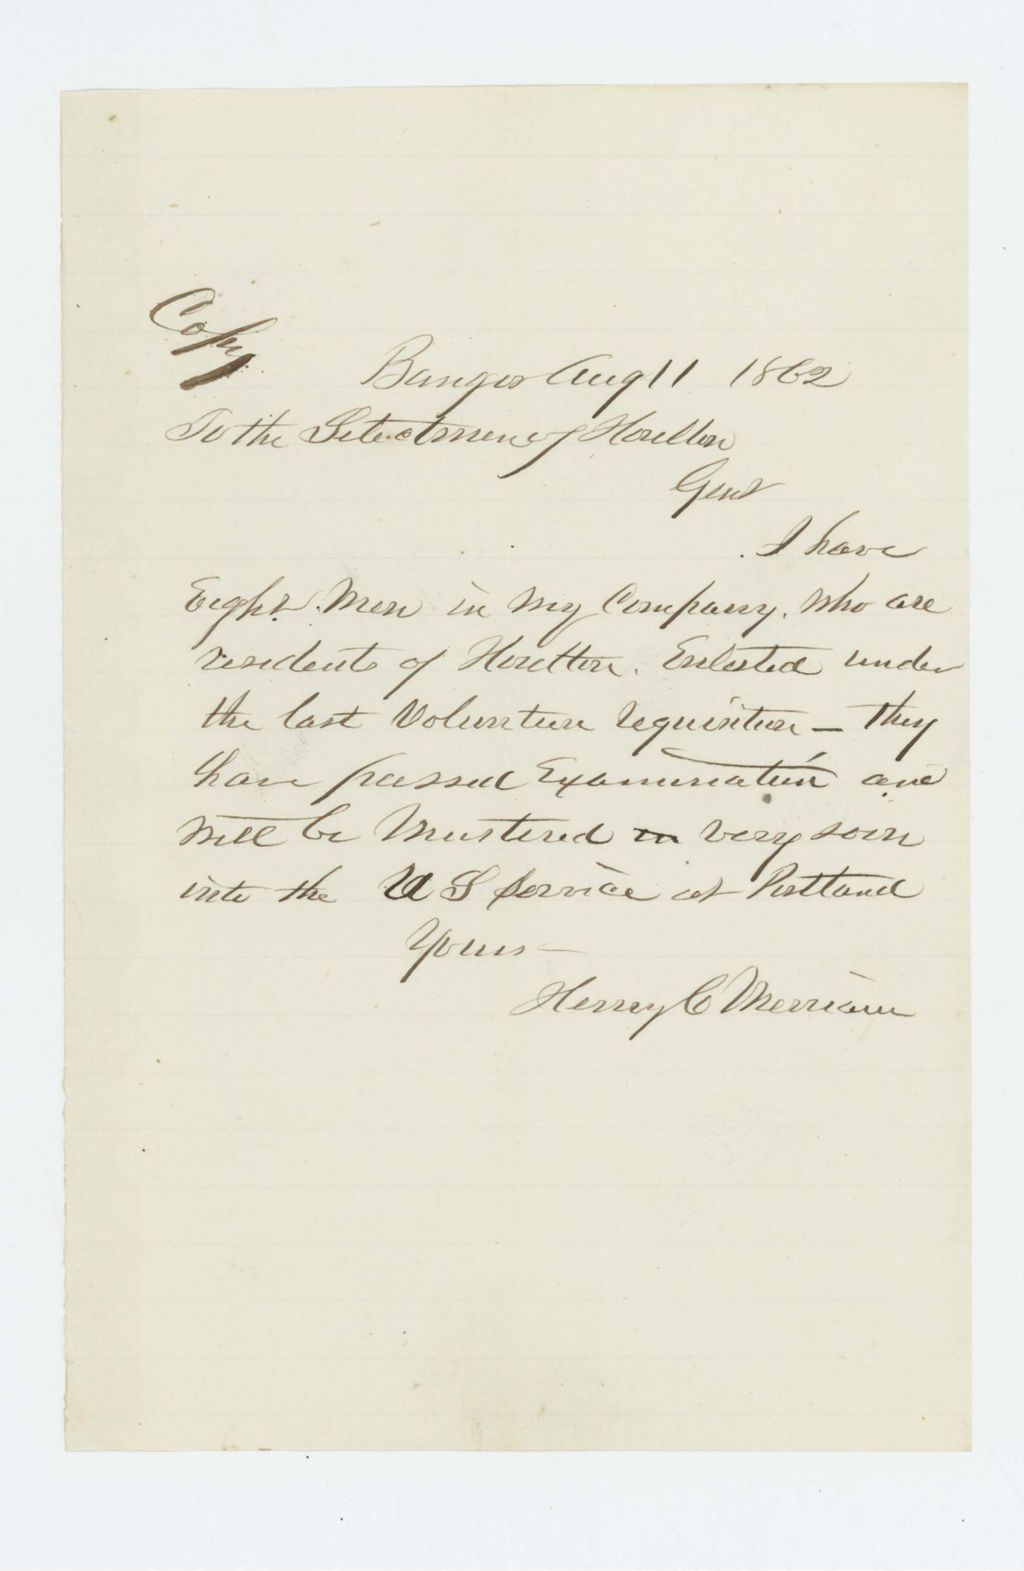 Copy
Bangor Aug 11 1862
To the Selectmen of Houlton
Gent
I have
Eight Men in my Company. who are
residents of Houlton. Enlisted under
the last Volunteer requisition — They
have passed Examination and
will be Mustered in very soon
into the U S Service at Portland
Yours —
Henry C Merriam